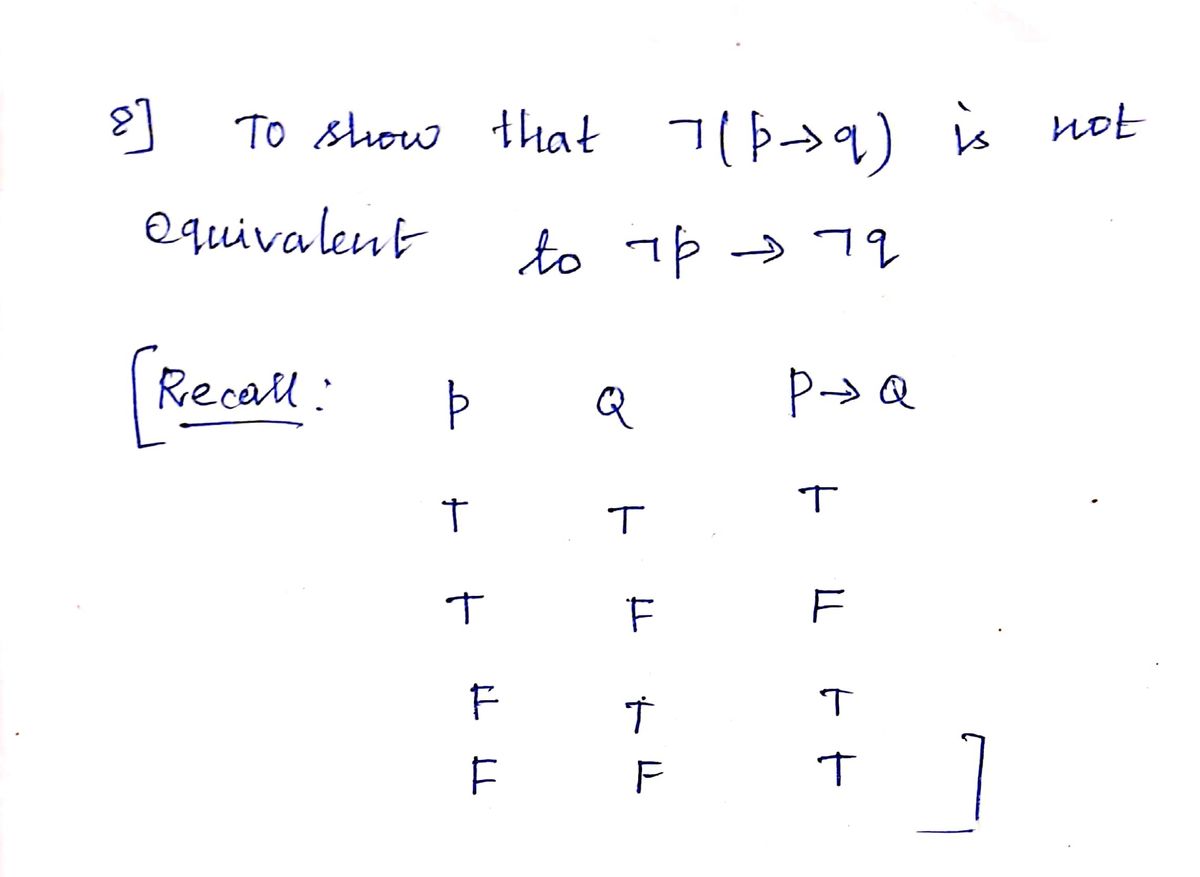 8] To show that ¬(p→q) is not
equivalent to ¬p → ¬q
[Recall: p Q P→Q
T T T
T F F
F T T
F F T ]